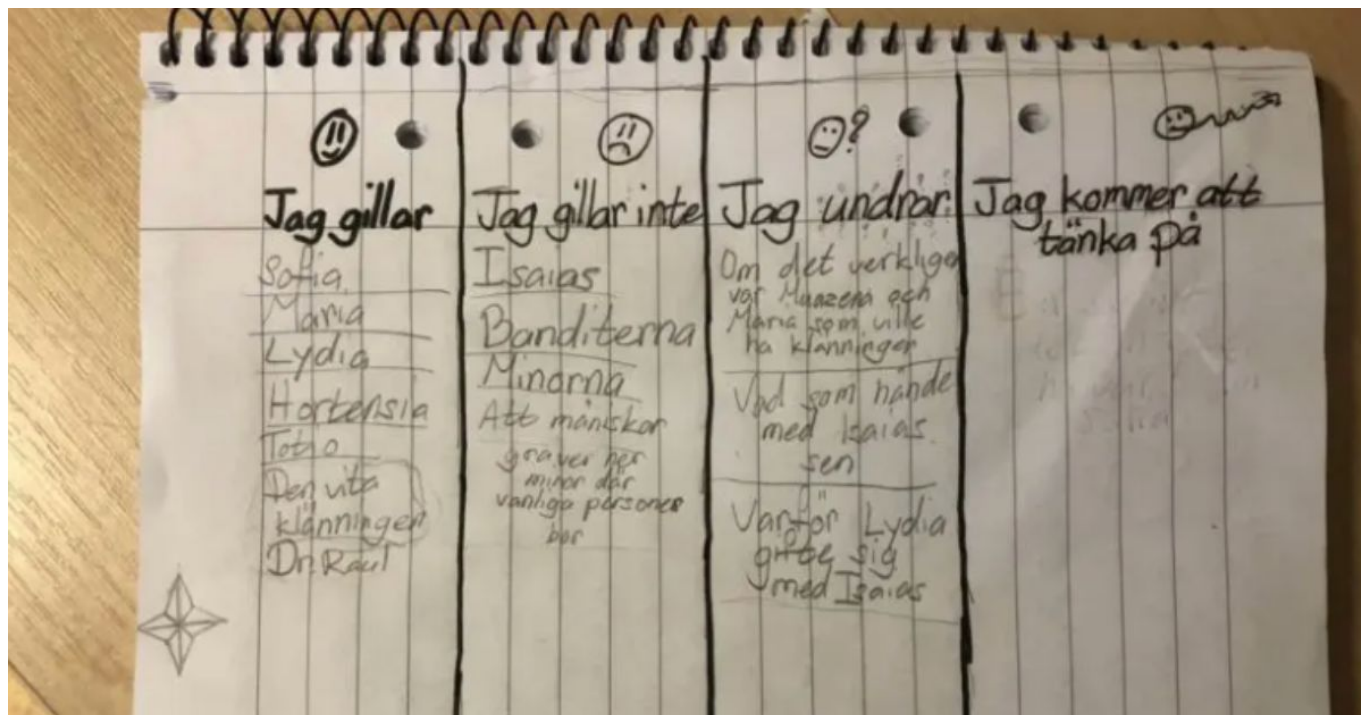 ?
Jag gillar
Sofia
Maria
Lydia
Hortensia
Totio
Den vita
klänningen
Dr. Raul
Jag gillar inte
Isaias
Banditerna
Minorna
Att mäniskor
graver ner
minor där
vanliga personer
bor
Jag undrar
Om det verkligen
var Muazena och
Maria som ville
ha klänningen
Vad som hände
med Isaias
sen
Varför Lydia
gifte sig
med Isaias
Jag kommer att
tänka på